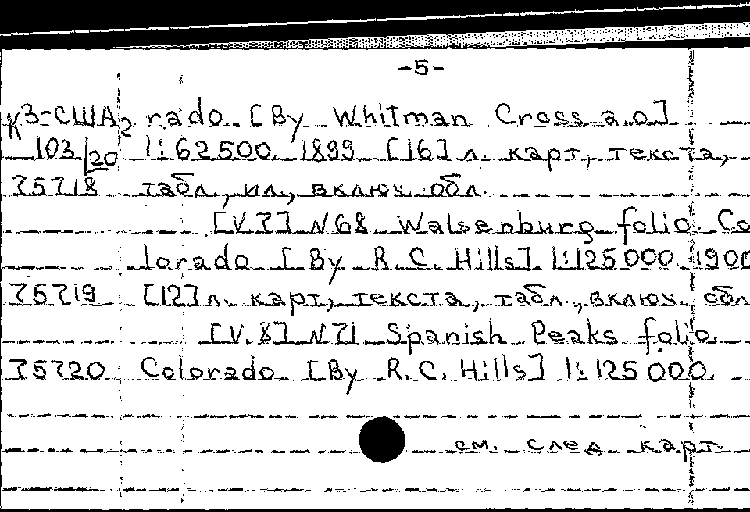 -5-
К3-США2 rado. [By Whitman Cross a.o.]
103/20 1:62500. 1899. [16] л. карт, текста,
75718 табл., ил., включ. обл.
[V.7] N68. Walsenburg folio. Co
lorado. [By R.C. Hills] 1:125000. 1900
75719 [12] л. карт, текста, табл., включ. обл
[V.8] N71. Spanish Peaks folio.
75720 Colorado. [By R.C. Hills] 1:125000.
см. след карт.